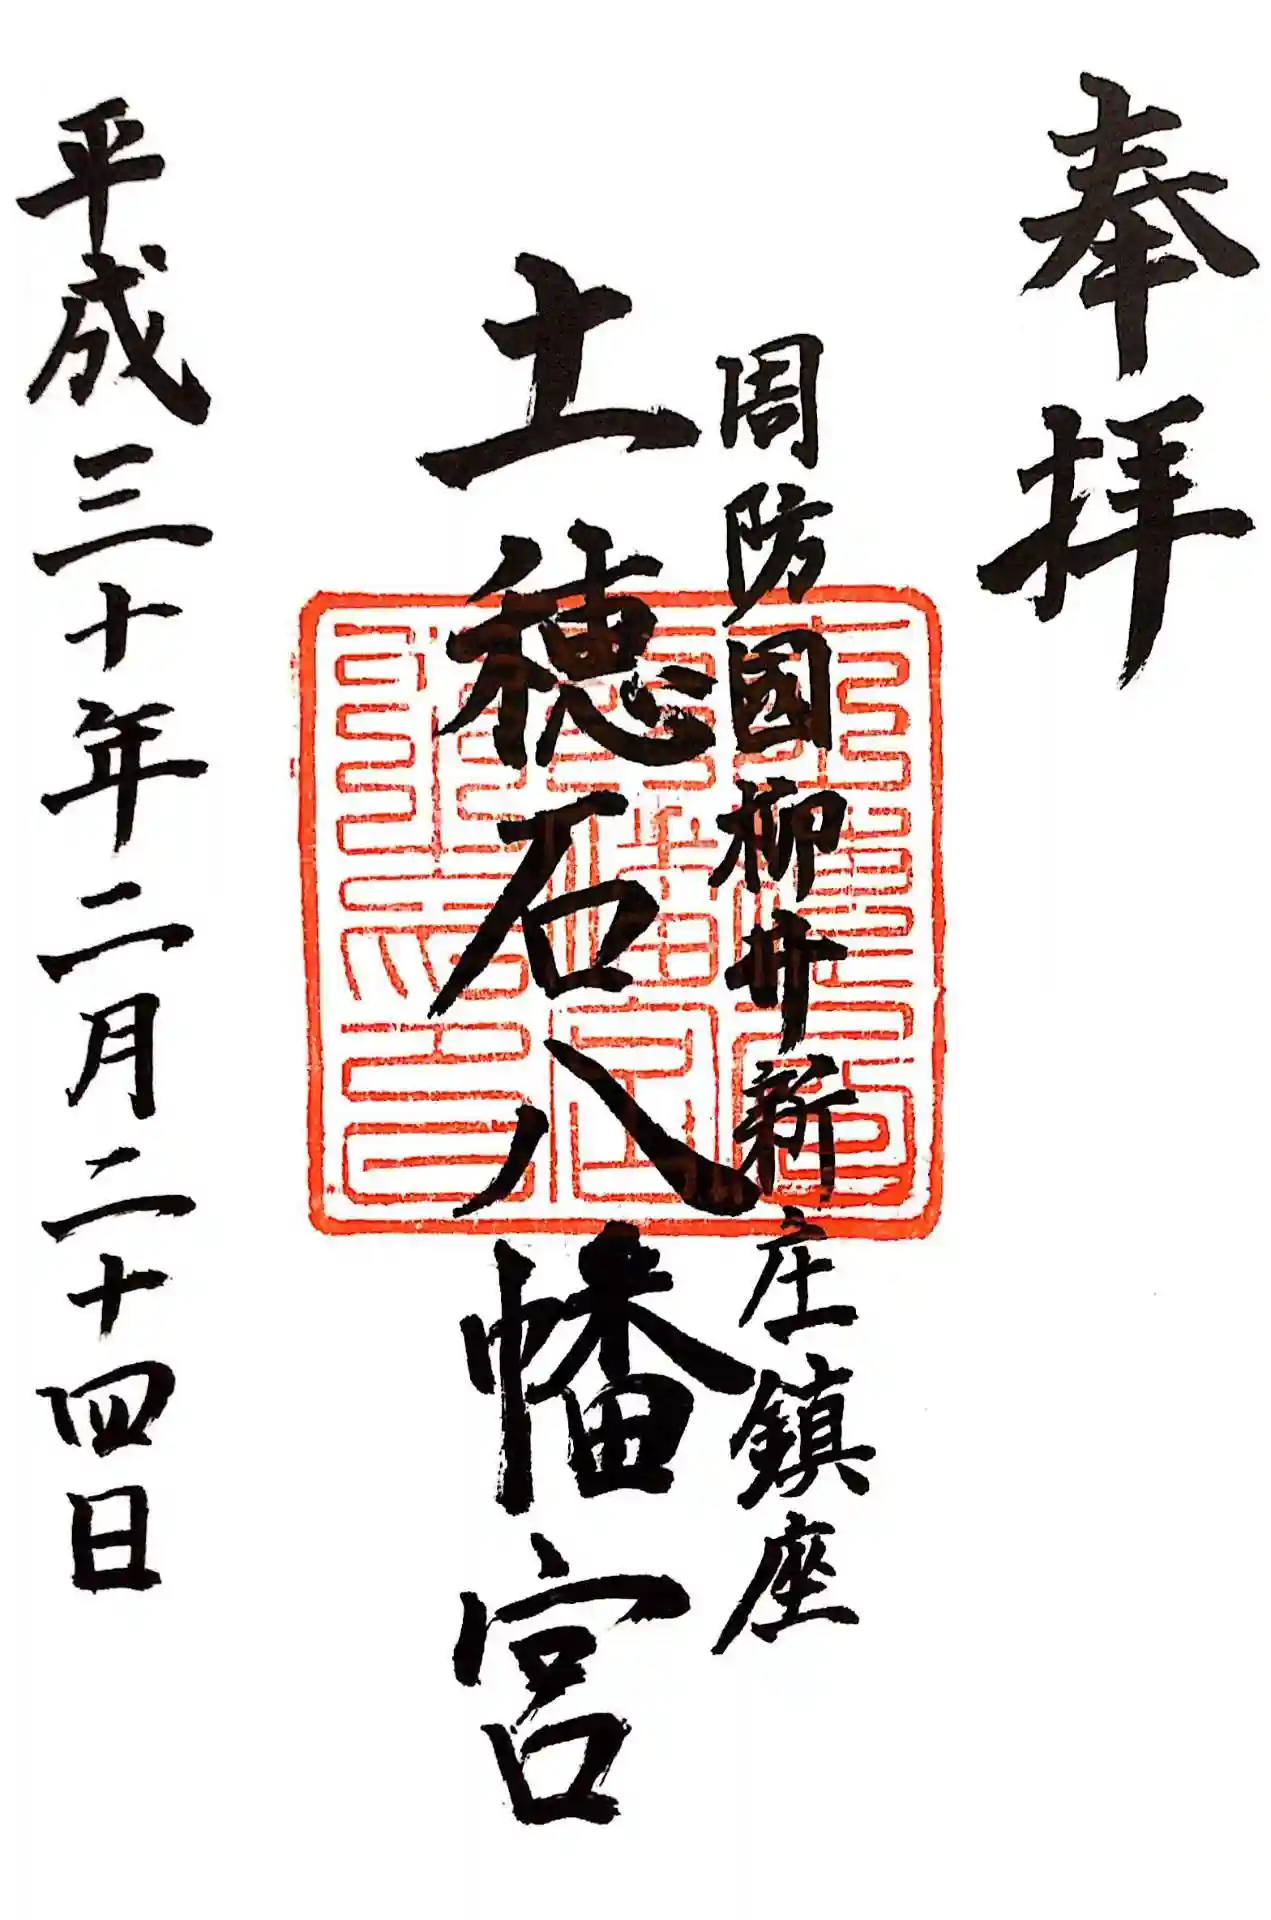 奉拝
周防国柳井新庄鎮座
土穂石八幡宮
平成三十年二月二十四日